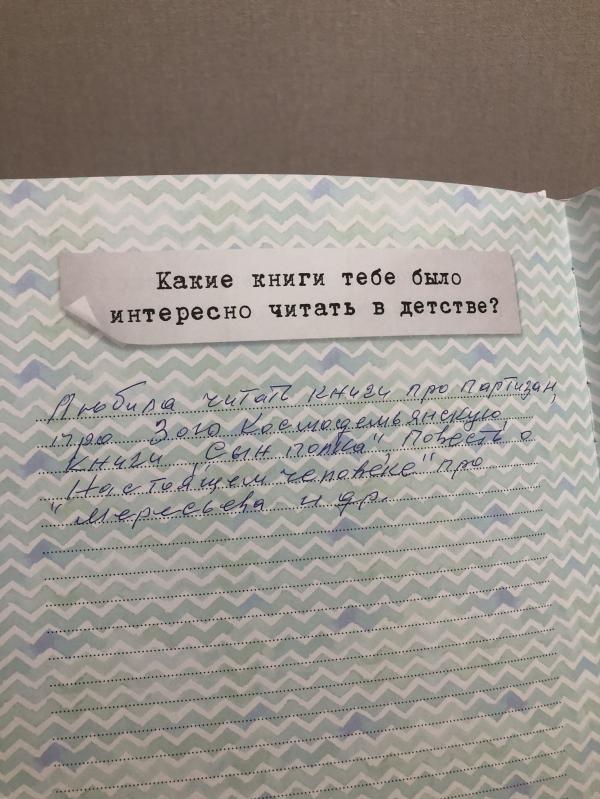 Какие книги тебе было
интересно читать в детстве?
Любила читать книги про партизан,
про Зою Космодемьянскую
книги "Сын полка", Повесть о
Настоящем человеке" про
"Мересьева и др.